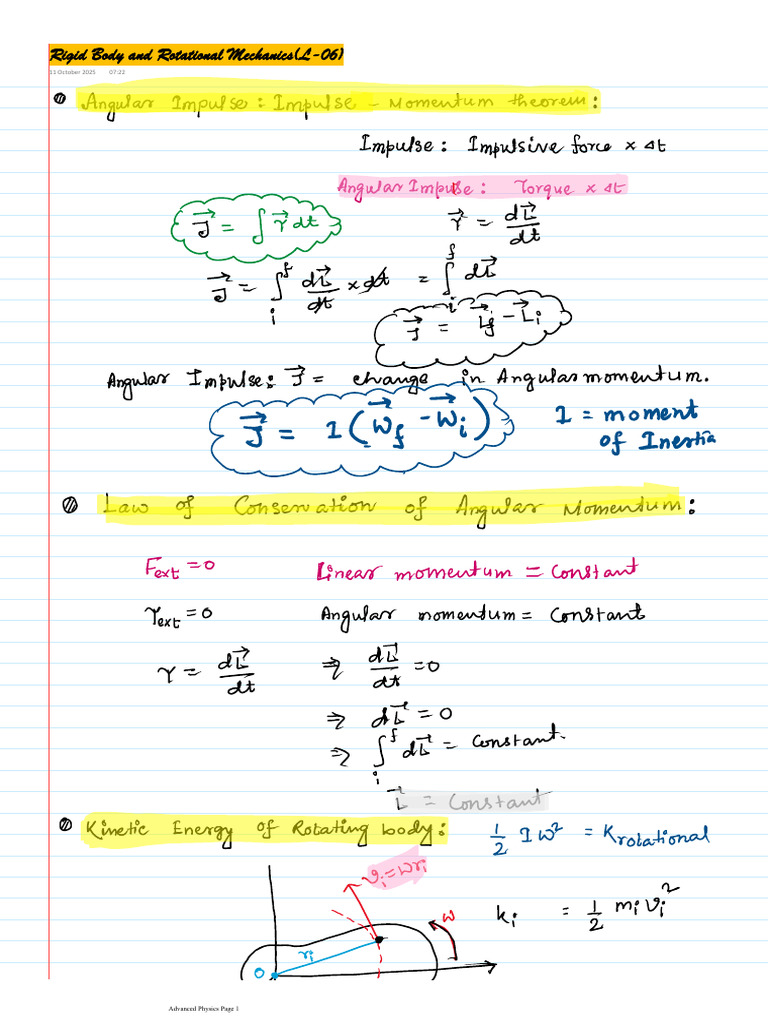 Rigid Body and Rotational Mechanics(L-06)
11 October 2025 07:22
Angular Impulse: Impulse - Momentum theorem:
Impulse: Impulsive force × Δt
Angular Impulse: Torque × Δt
J⃗ = ∫ τ⃗ dt
τ⃗ = dL⃗/dt
J⃗ = ∫_i^f dL⃗/dt × dt = ∫_i^f dL⃗
J⃗ = L⃗f - L⃗i
Angular Impulse: J⃗ = change in Angular momentum.
J⃗ = I(ω⃗f - ω⃗i)
I = moment
of Inertia
Law of Conservation of Angular Momentum:
Fext = 0 Linear momentum = Constant
τext = 0 Angular momentum = Constant
τ = dL⃗/dt ⇒ dL⃗/dt = 0
⇒ dL⃗ = 0
⇒ ∫_i^f dL⃗ = Constant.
L⃗ = Constant
Kinetic Energy of Rotating body: 1/2 I ω² = Krotational
vi = ωri
ω
Ki = 1/2 mi vi²
ri
O
Advanced Physics Page 1